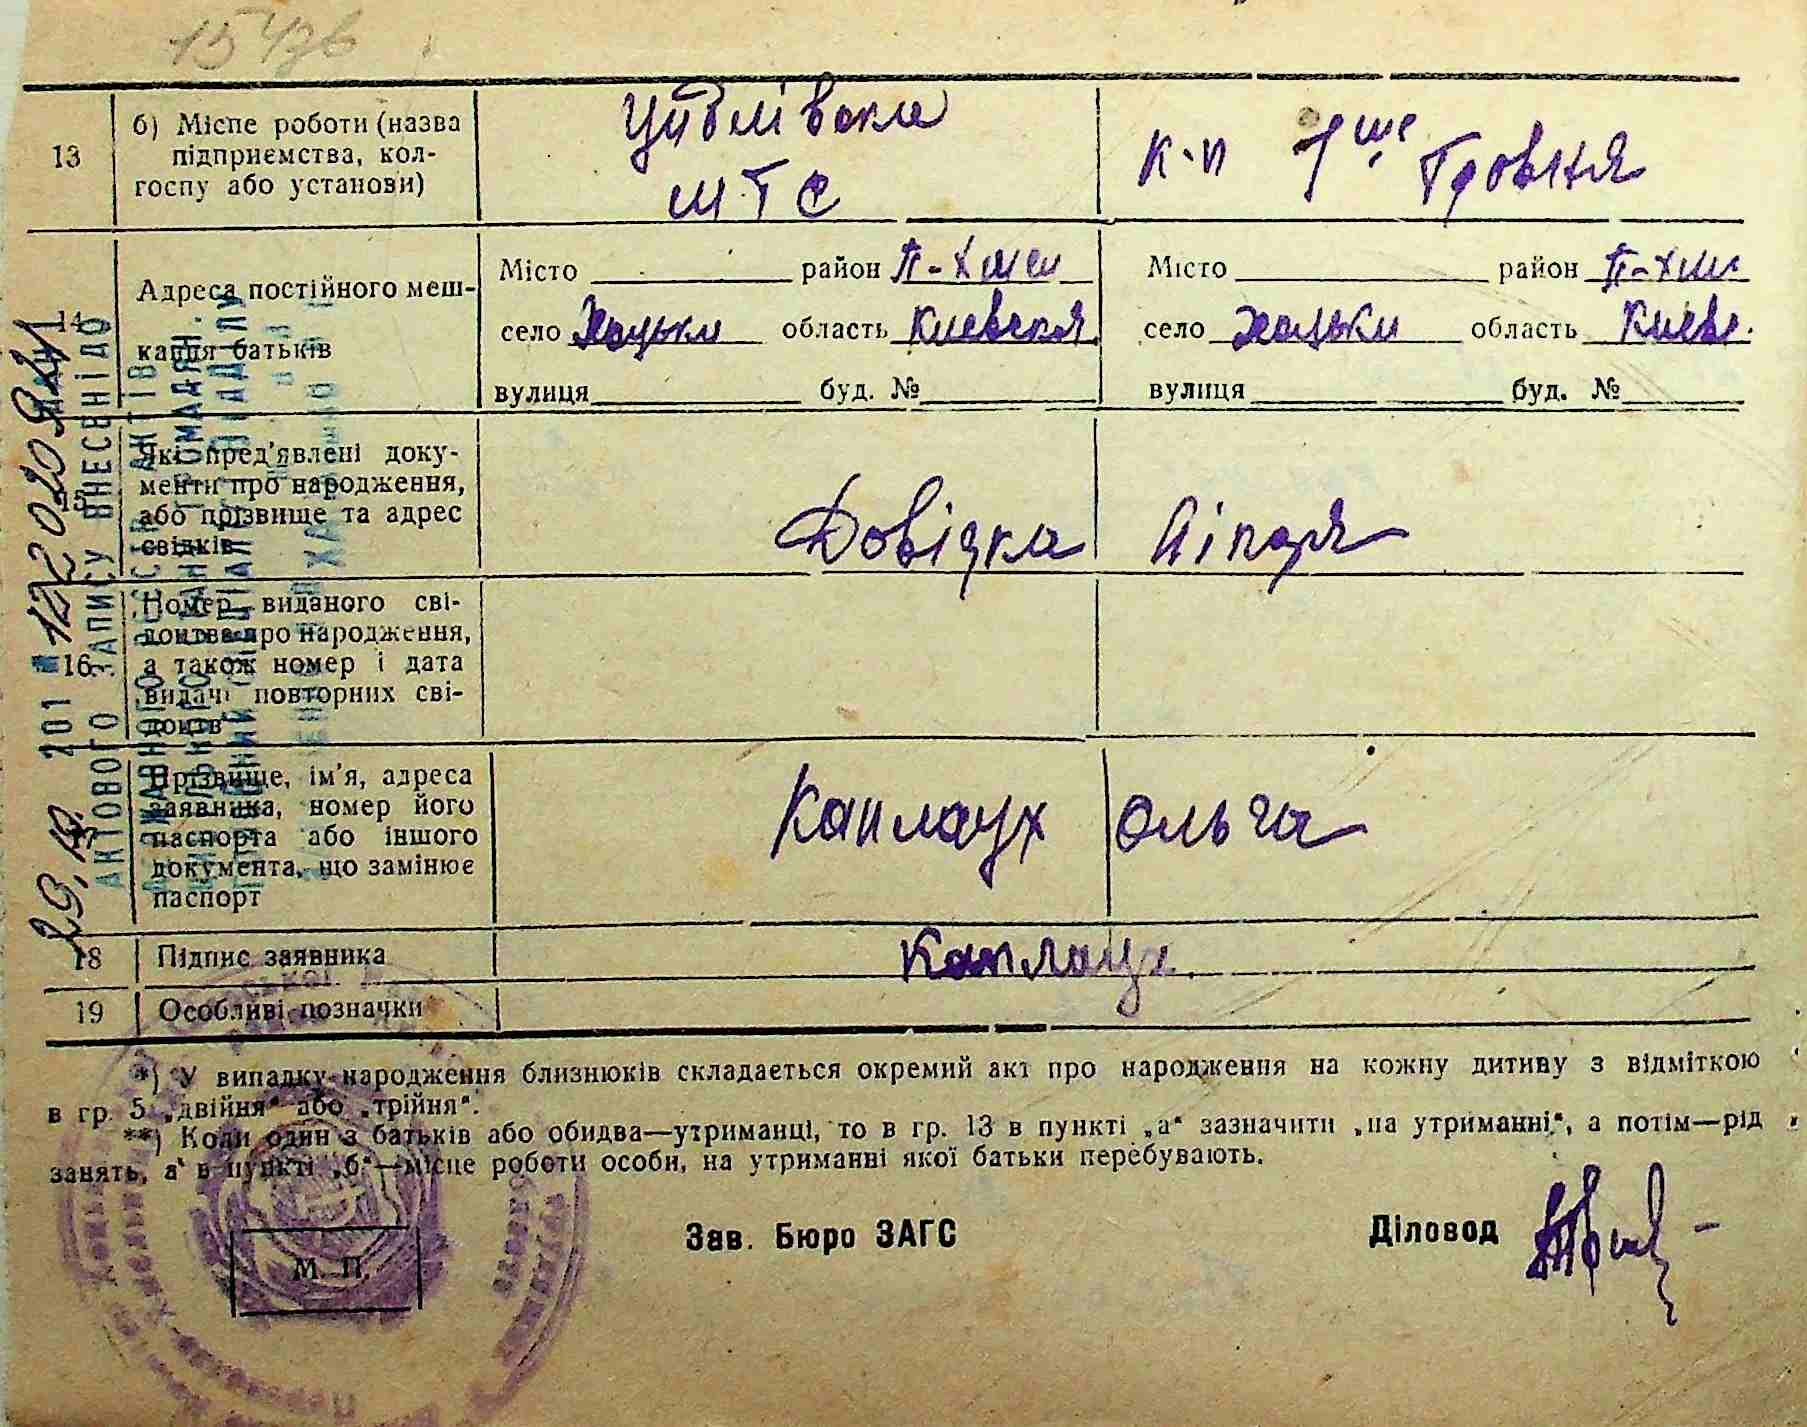 13
б) Місце роботи (назва
підприємства, кол-
госпу або установи)
МТС
к-п 1ше Травня
14
Адреса постійного меш-
кання батьків
Місто район П-Хмел
село Хоцьки область Киевская
вулиця буд. №
Місто район П-Хм
село Хоцьки область Киевс.
вулиця буд. №
15
Які пред'явлені доку-
менти про народження,
або прізвище та адрес
свідків
Довідка лікаря
16
Номер виданого сві-
доцтва про народження,
а також номер і дата
видачі повторних сві-
доцтв
17
Прізвище, ім'я, адреса
заявника, номер його
паспорта або іншого
документа, що замінює
паспорт
Каплаух Ольга
18
Підпис заявника
Каплаух
19
Особливі позначки
*) У випадку народження близнюків складається окремий акт про народження на кожну дитину з відміткою
в гр. 5 „двійня“ або „трійня“.
**) Коли один з батьків або обидва—утриманці, то в гр. 13 в пункті „а“ зазначити „на утриманні“, а потім—рід
занять, а в пункті „б“—місце роботи особи, на утриманні якої батьки перебувають.
М. П.
Зав. Бюро ЗАГС
Діловод
АКТОВОГО ЗАПИСУ ВНЕСЕНІ ДО